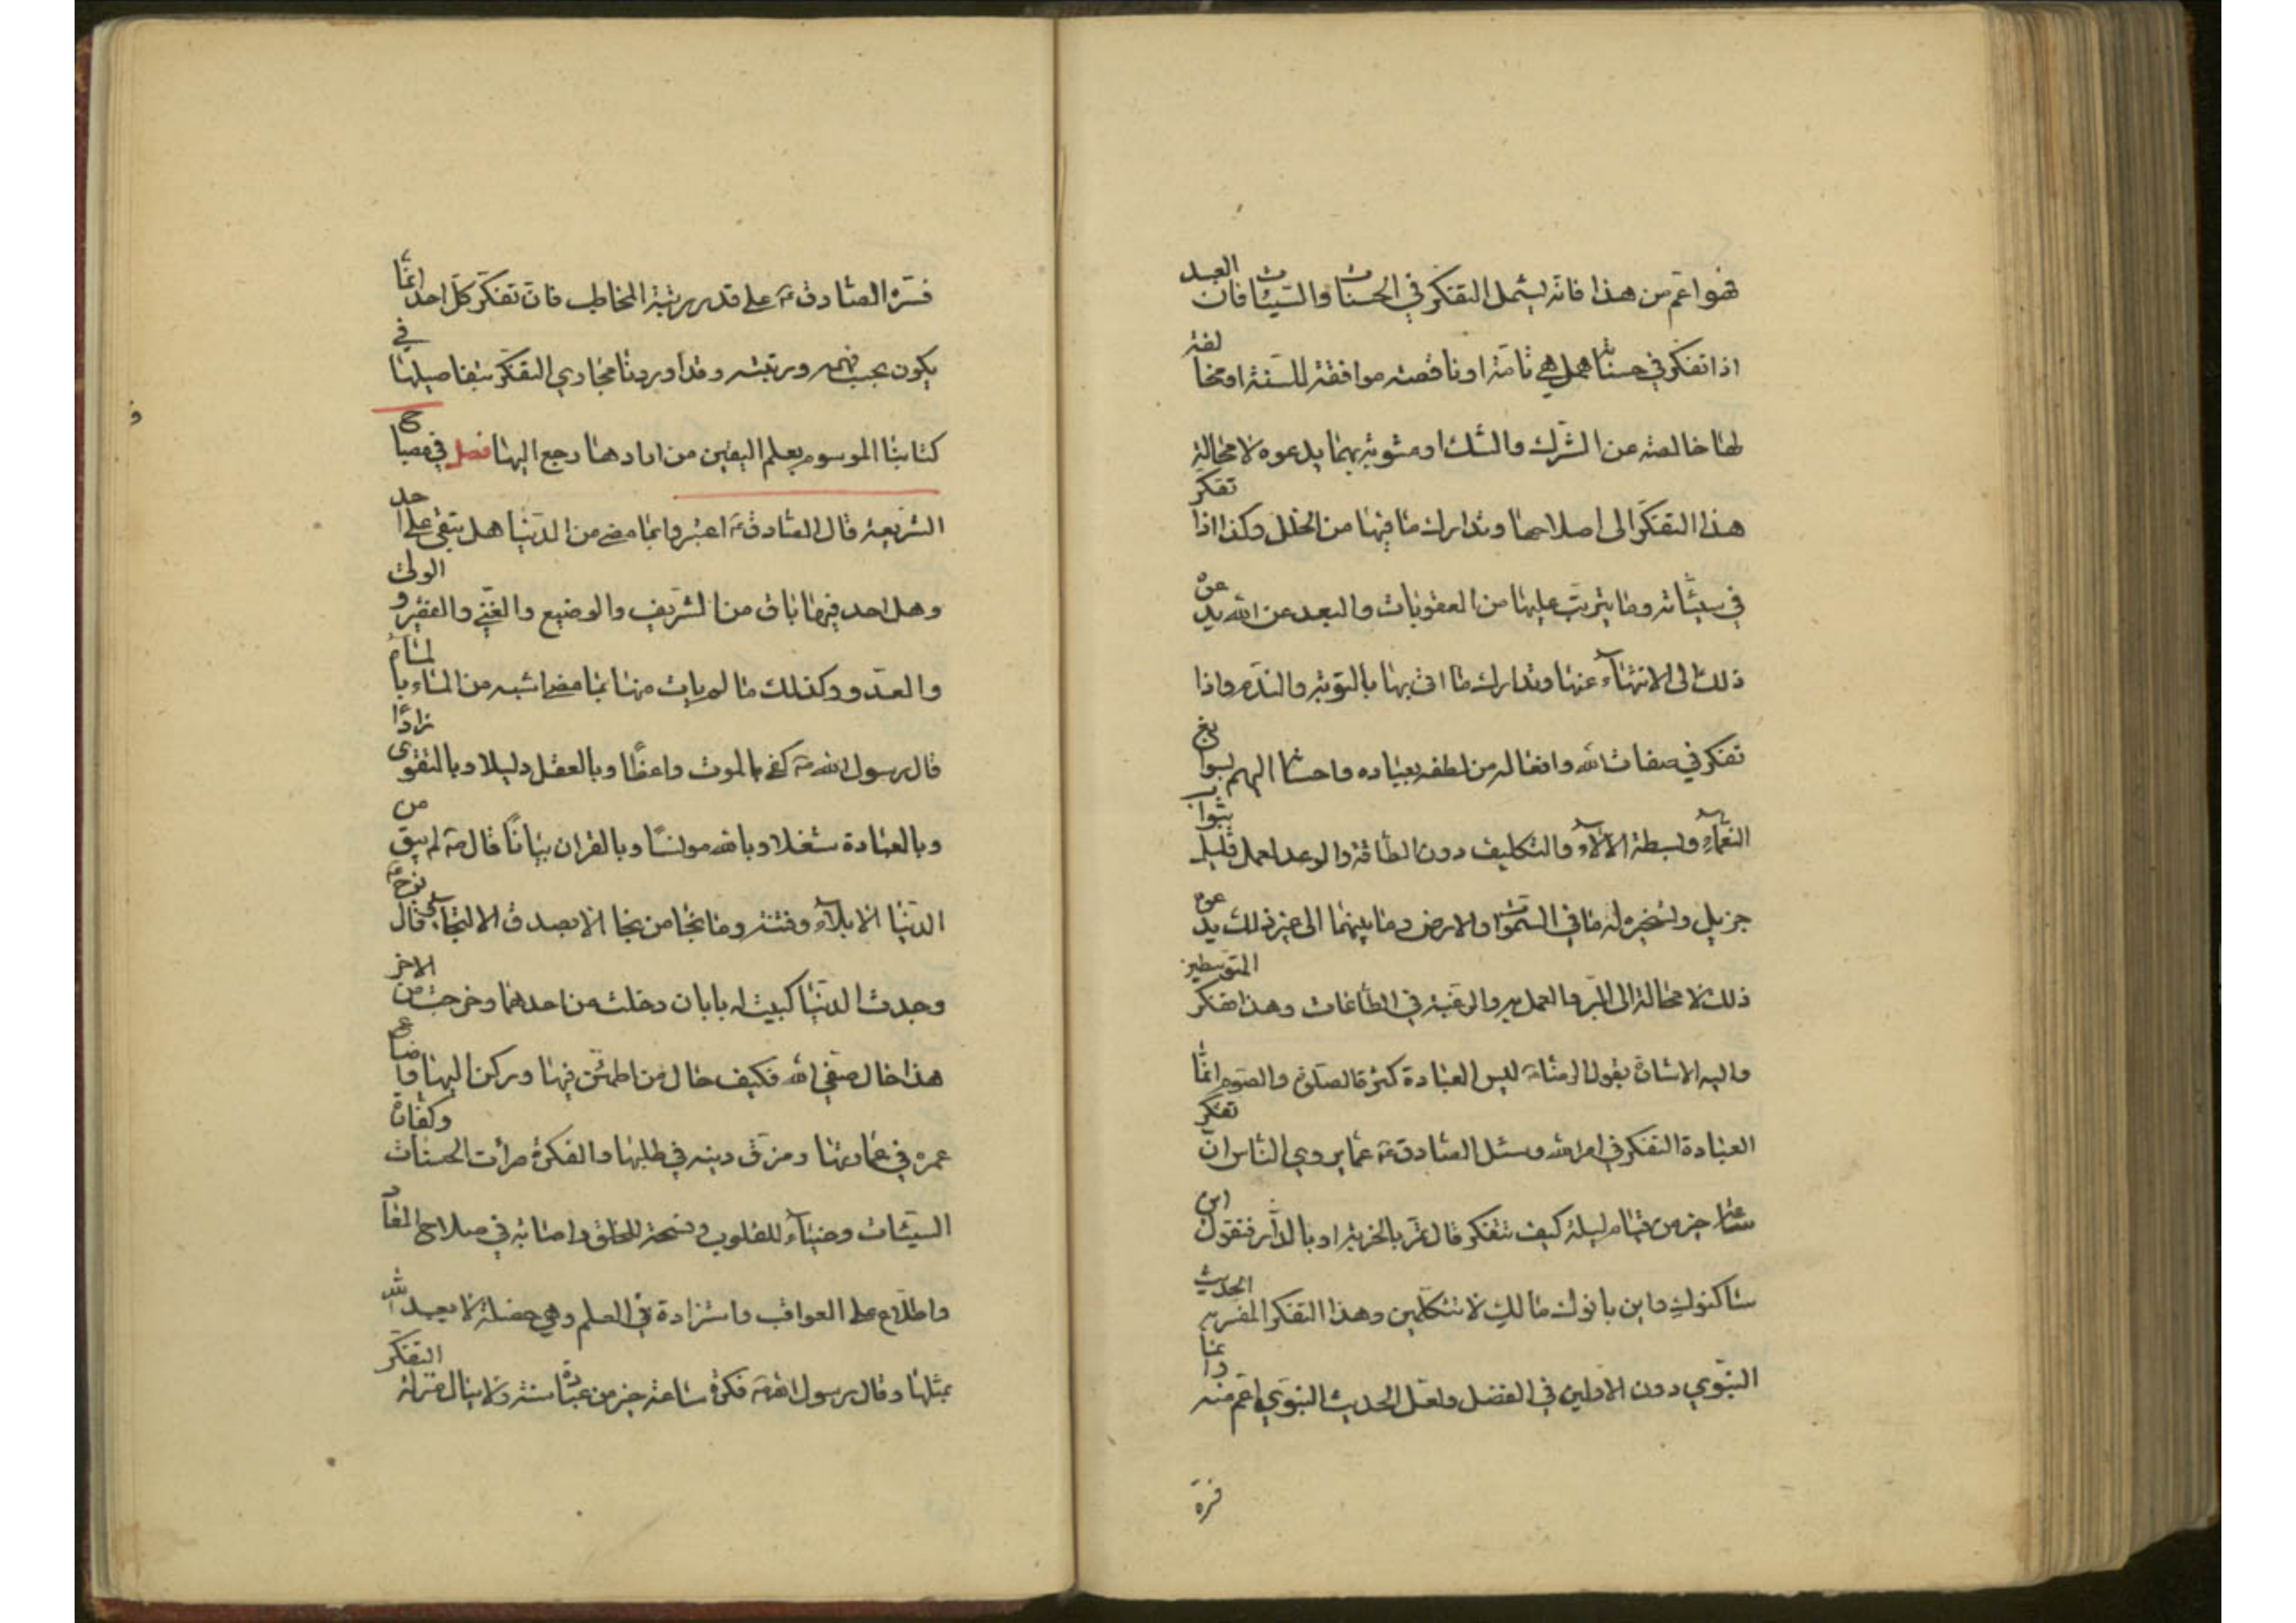 فهو اعم من هذا فانه يشمل التفكر في الحسنات والسيئات فان العبد
اذا تفكر في حسناته هل هي تامة او ناقصة موافقة للسنة او مخالفة
لها خالصة عن الشرك والشك او مشوبة بهما يدعوه لا محالة
هذا التفكر الى اصلاحها وتدارك ما فيها من الخلل وكذا اذا تفكر
في سيئاته وما يترتب عليها من العقوبات والبعد عن الله يدعوه
ذلك الى الانتهاء عنها وتدارك ما اتى بها بالتوبة والندم واذا
تفكر في صفات الله وافعاله من لطفه بعباده واحسانه اليهم بسوابغ
النعماء وبسطة الالاء والتكليف دون الطاقة والوعد لعمل قليل بثواب
جزيل وتسخيره له ما في السموات والارض وما بينهما الى غير ذلك يدعوه
ذلك لا محالة الى البر والعمل به والرغبة في الطاعات وهذا تفكر المتوسطين
واليه الاشارة بقول الرضا ع ليس العبادة كثرة الصلوة والصوم انما
العبادة التفكر في امر الله وسئل الصادق ع عما يروي الناس ان تفكر
ساعة خير من قيام ليلة كيف تتفكر قال تمر بالخربة او بالدار فتقول اين
ساكنوك واين بانوك مالك لا تتكلمين وهذا التفكر المفسر به الحديث
النبوي دون الاولين في الفضل ولعل الحديث النبوي اعم منه وانما
فسره
فسره الصادق ع على قدر رتبة المخاطب فان تفكر كل احد انما
يكون بحسب فهمه ورتبته وقد اوردنا مجاري التفكر بتفاصيلها في
كتابنا الموسوم بعلم اليقين من ارادها رجع اليها فصل في مصباح
الشريعة قال الصادق ع اعتبروا بما مضى من الدنيا هل بقى على احد
وهل احد فيها باق من الشريف والوضيع والغني والفقير والولي
والعدو وكذلك ما لم يات منها بما مضى اشبه من الماء بالماء
قال رسول الله ص كفى بالموت واعظا وبالعقل دليلا وبالتقوى زادا
وبالعبادة شغلا وبالله مونسا وبالقران بيانا قال ص لم يبق من
الدنيا الا بلاء وفتنة وما نجا من نجا الا بصدق الالتجاء قال نوح ع
وجدت الدنيا كبيت له بابان دخلت من احدهما وخرجت من الاخر
هذا حال صفي الله فكيف حال من اطمئن فيها وركن اليها واضاع
عمره في عمارتها ومزق دينه في طلبها والفكرة مرآت الحسنات وكفارة
السيئات وضياء للقلوب وفسحة للخلق واصابة في صلاح المعاد
واطلاع على العواقب واستزادة في العلم وهي خصلة لا يعبد الله
بمثلها وقال رسول الله ص فكرة ساعة خير من عبادة سنة ولا ينال منزلة التفكر